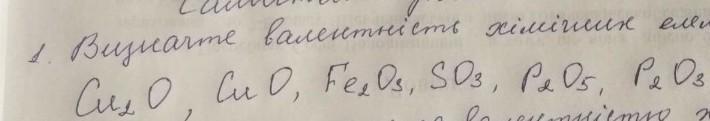 1. Визначте валентність хімічних елем
Cu₂O, CuO, Fe₂O₃, SO₃, P₂O₅, P₂O₃